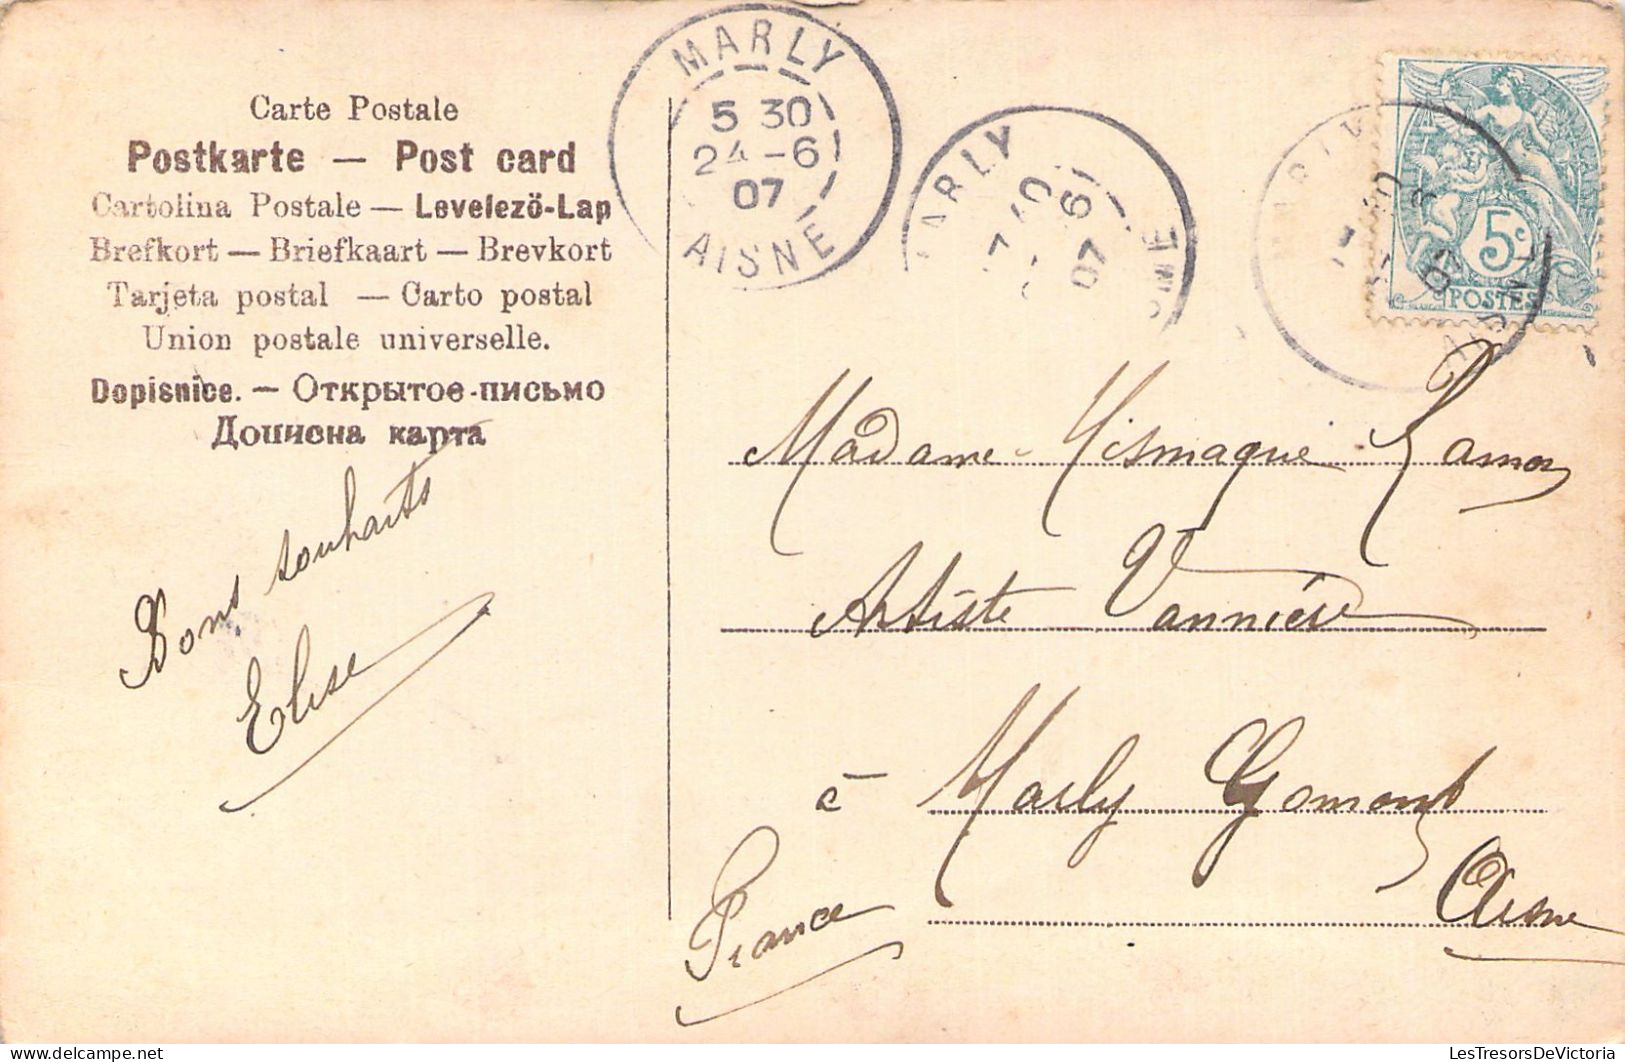 Carte Postale
Postkarte — Post card
Cartolina Postale — Levelező-Lap
Brefkort — Briefkaart — Brevkort
Tarjeta postal — Carto postal
Union postale universelle.
Dopisnice. — Открытое-письмо
Дописна карта
Bons souhaits
Elise
MARLY
5 30
24 -6
07
AISNE
MARLY
7 40
6
07
5c
POSTES
Madame
Artiste Vannière
à Marly Gomont
Aisne
France
delcampe.net
LesTresorsDeVictoria